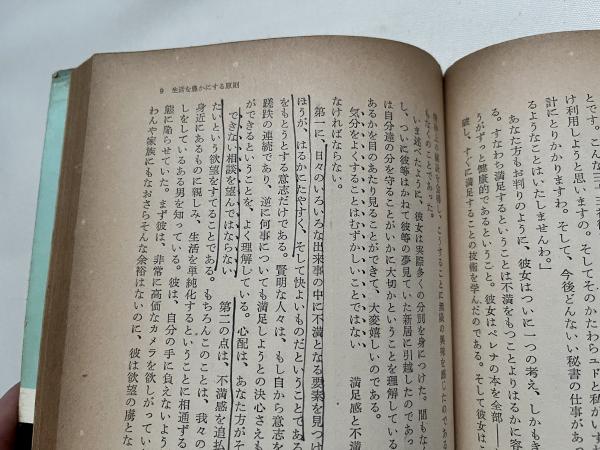 とです。こんな二、三
け利用しようと思いますの。そのかたわらユドと私がいす
計にとりかかりますわ。そして、今後どんないい秘書の仕事があっ
るようなことはいたしませんわ。」
あなた方もお判りのように、彼女はついに一つの考え、しかもき
る。すなわち満足するということは不満をもつことよりはるかに容
うがずっと健康的であるということ。彼女はペレナの本を全部——
し、すぐに満足することの技術を学んだのである。そして彼女はこ
9 生活を豊かにする原則
こうすることに無限の興味を感じたのである
もなくのことであった。
いま述べたように、彼女は実際多くの分別を身につけた。間もなく
し、ついに彼等はかねて彼等の夢見ていた新居に引越したのであっ
は自分達の分を守ることがいかに大切かということを理解している
あるかを目のあたり見ることができて、大変嬉しいのである。
気分をよくすることはむずかしいことではない 満足感と不満
なければならない。
第一に、日々のいろいろな出来事の中に不満となる要素を見つけ
ほうが、はるかにたやすく、そして快よいものだということであろ
をもとうとする意志だけである。賢明な人々は、もし自から意志を
蹉跌の連続であり、逆に何事についても満足しようとの決心さえも
ができるということを、よく理解している。心配は、あなた方がそ
できない相談を望んではならない 第二の点は、不満感を追払
たいという欲望をすてることである。もちろんこのことは、我々の
身近にあるものに親しみ、生活を単純化するということに相通ずる
しをしているある男を知っている。彼は、自分の手に負えないよう
態に陥らせていた。まず彼は、非常に高価なカメラを欲しがってい
わんや家族にもなおさらそんな余裕はないのに、彼は欲望の虜とな